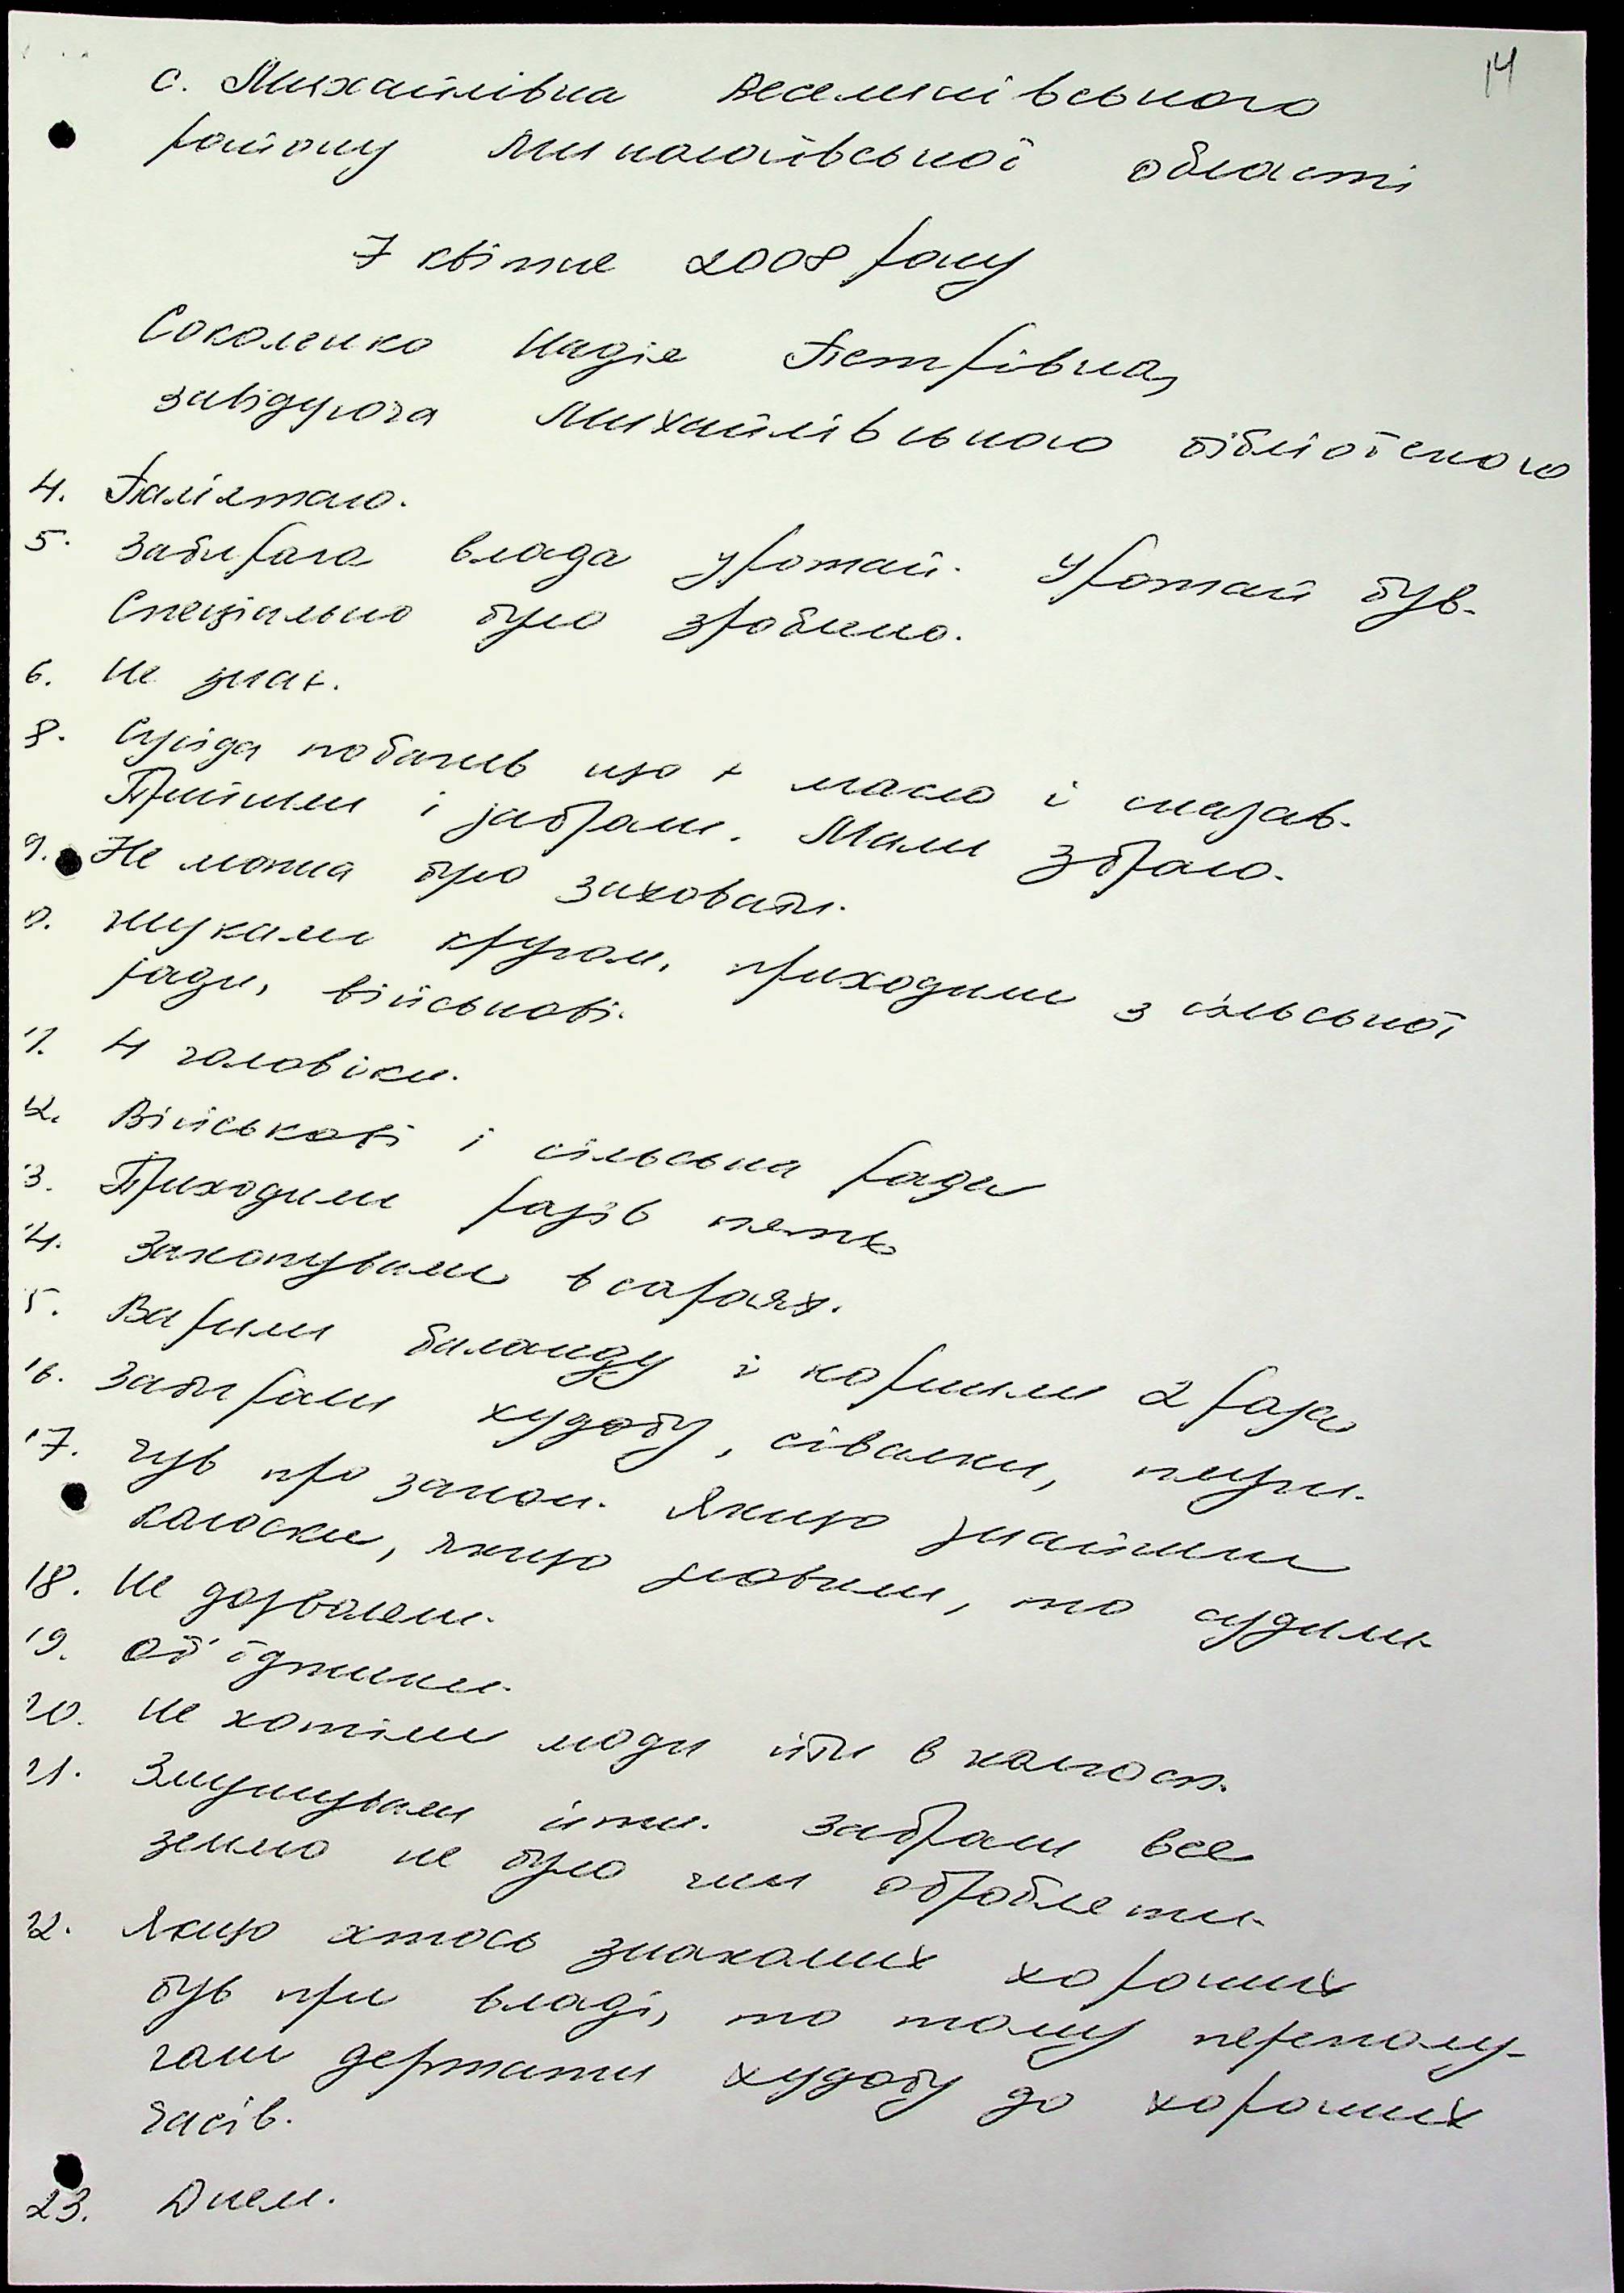 14
с. Михайлівка Веселинівського
району Миколаївської області
7 квітня 2008 року
Соколенко Надія Петрівна,
завідуюча Михайлівською бібліотекою
4. Пам'ятаю.
5. Забирала влада урожай. Урожай був.
Спеціально було зроблено.
6. Не знає.
8. Сусіда побачив що є масло і сказав.
Прийшли і забрали. Мали зброю.
9. Не можна було заховати.
0. Шукали кругом, приходили з сільської
ради, військові.
11. 4 чоловіки.
12. Військові і сільська рада
13. Приходили разів п'ять
14. Закопували в сараях.
15. Варили баланду і кормили 2 рази
16. Забирали худобу, сівалки, плуги.
17. Чув про закон. Якщо знайшли
колоски, якщо зловили, то судили
18. Не дозволяли.
19. Об'їдчики.
20. Не хотіли люди йти в колгосп.
21. Змушували іти. Забрали все
землю не було чим обробляти.
22. Якщо хтось знакомих хороших
був при владі, то тому
держати худобу до хороших
часів.
23. Днем.